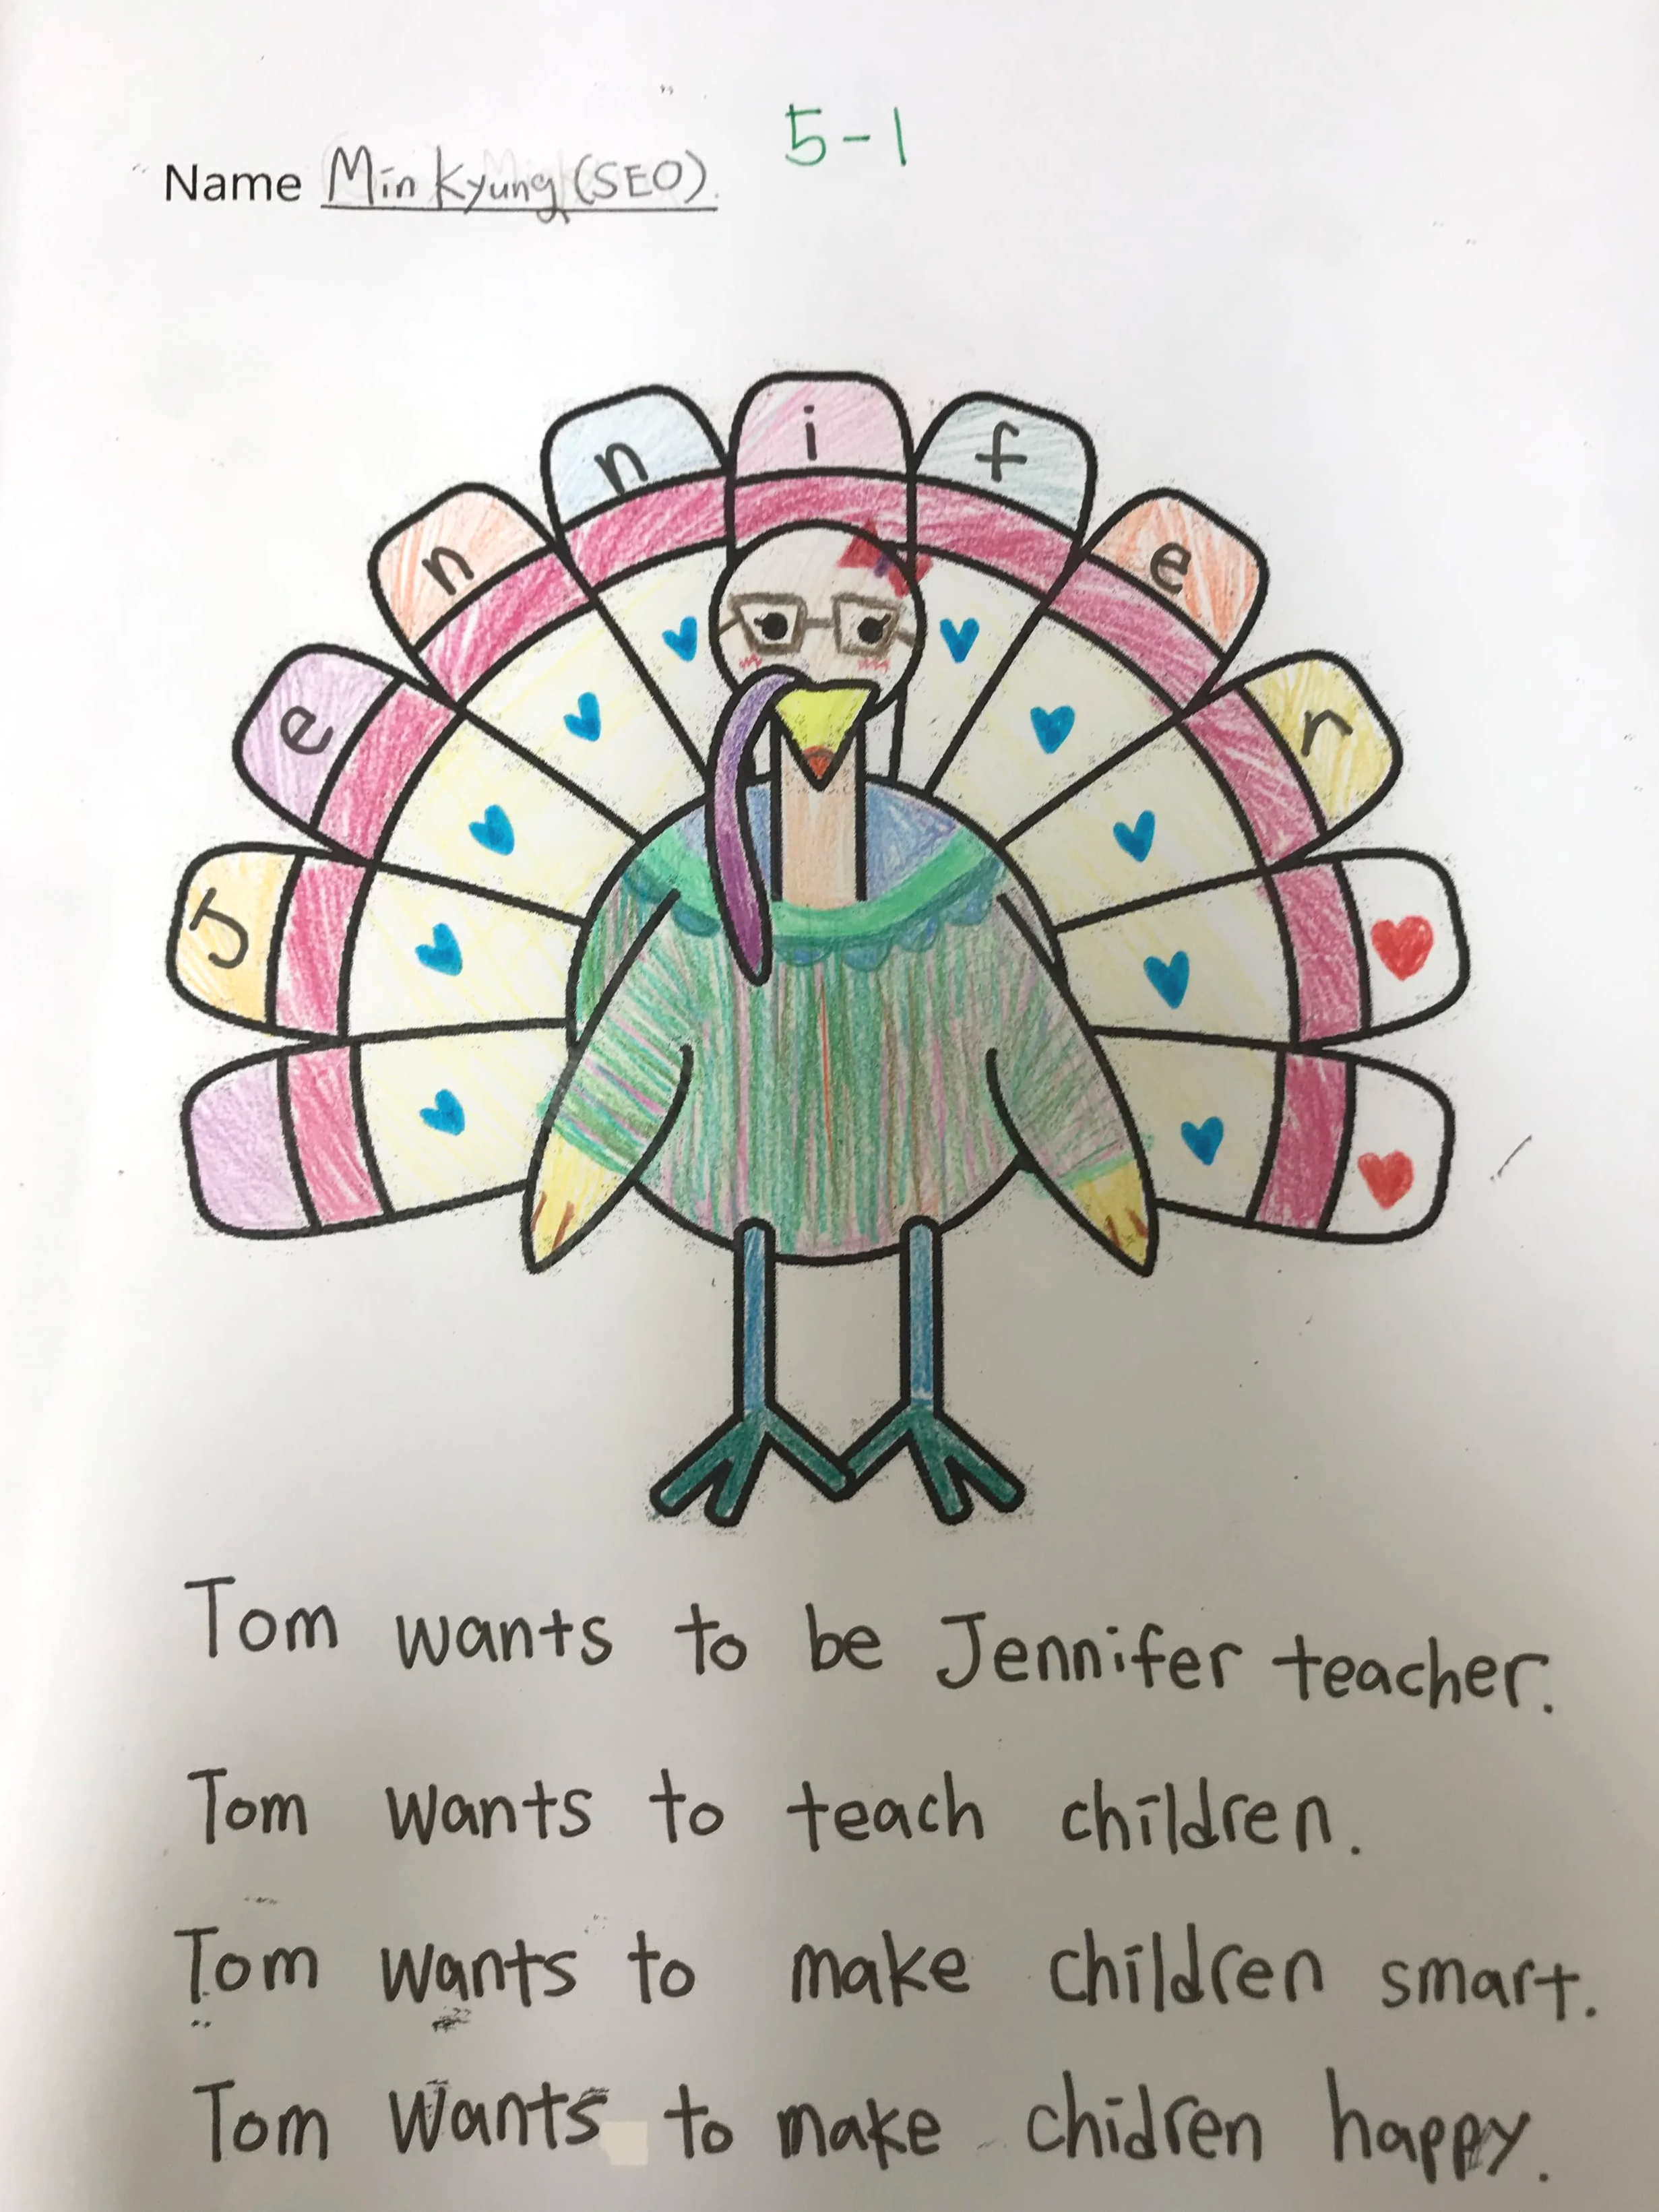 5-1
Name Min Kyung (SEO).
J e n n i f e r
Tom wants to be Jennifer teacher.
Tom wants to teach children.
Tom wants to make children smart.
Tom wants to make chidren happy.